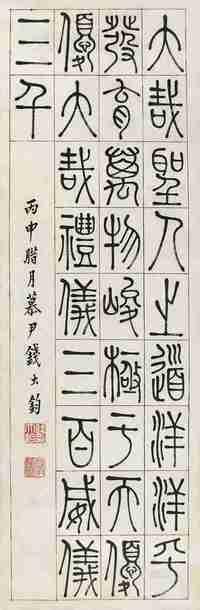 大哉聖人之道洋洋乎
發育萬物峻極于天優
優大哉禮儀三百威儀
三千
丙申腊月慕尹錢大鈞